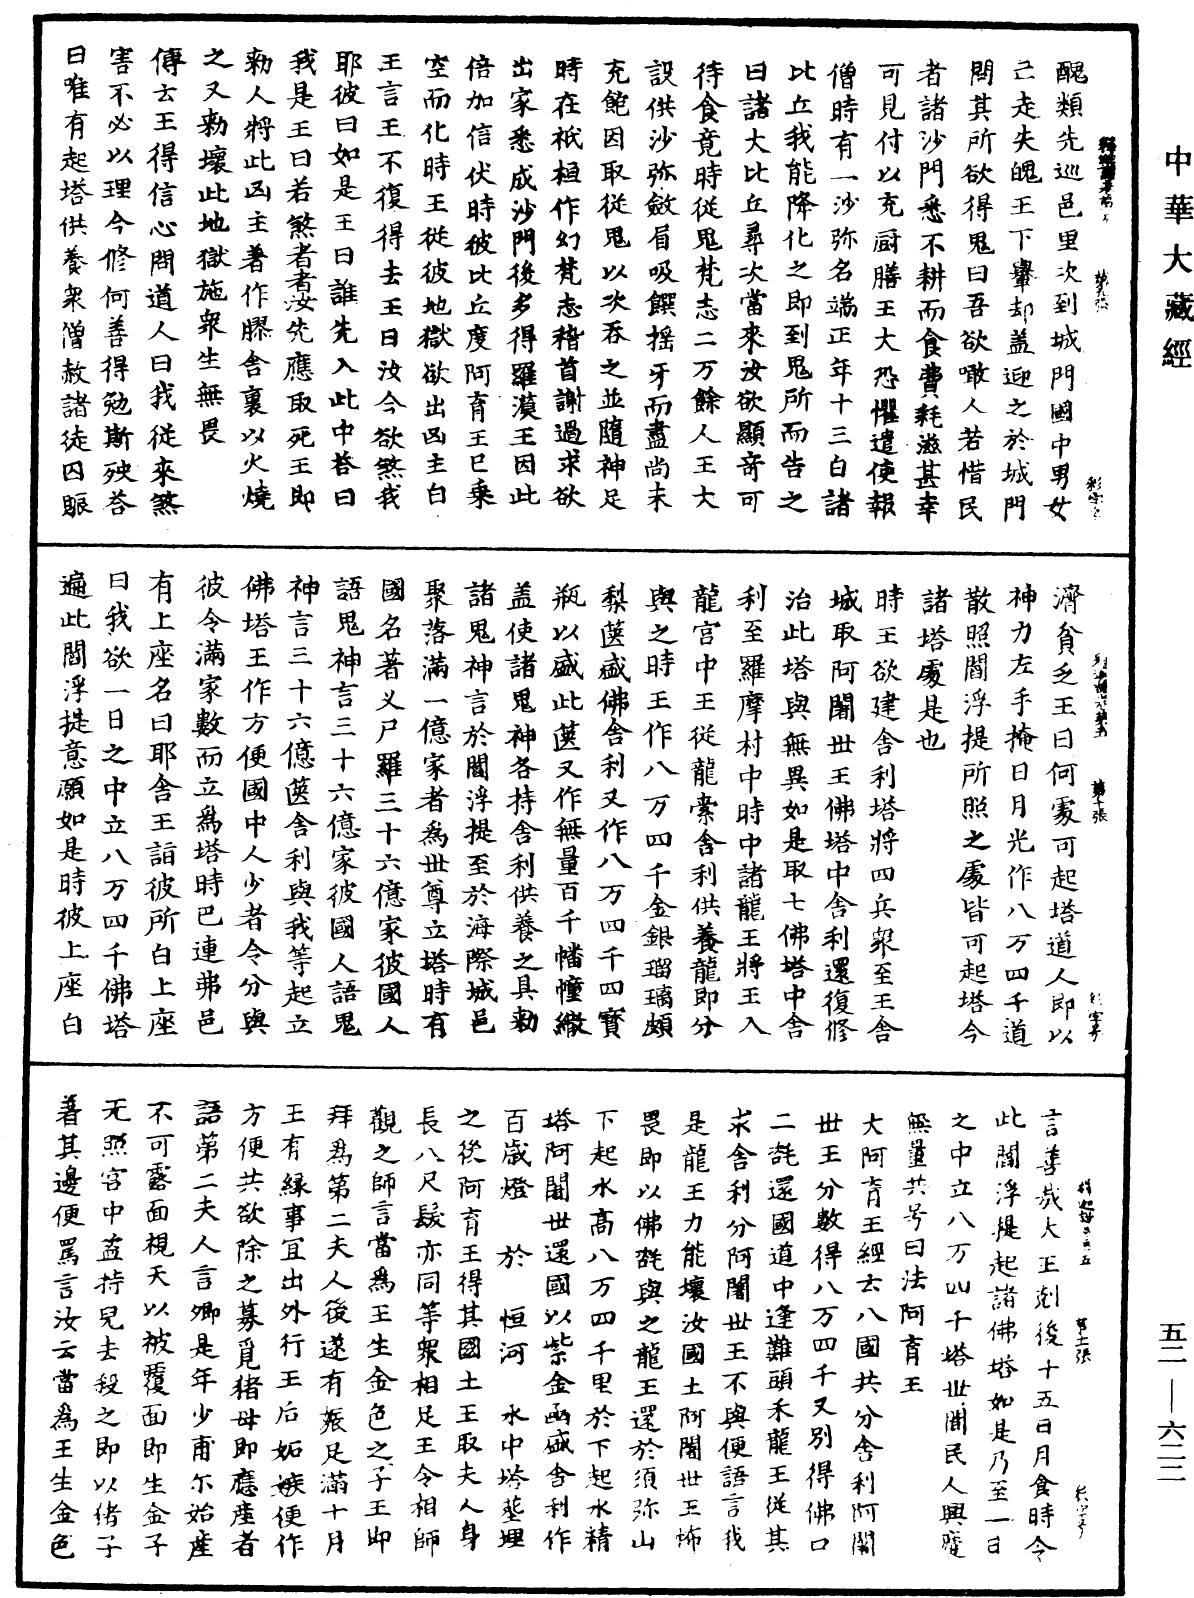 中華大藏經
醜類先巡邑里次到城門國中男女
己走失魄王下轝却盖迎之於城門
問其所欲得鬼曰吾欲噉人若惜民
者諸沙門悉不耕而食費耗滋甚幸
可見付以充厨膳王大恐懼遣使報
僧時有一沙弥名端正年十三白諸
比丘我能降化之即到鬼所而告之
曰諸大比丘尋次當來汝欲顯奇可
待食竟時從鬼梵志二万餘人王大
設供沙弥斂眉吸饌搖牙而盡尚未
充飽因取從鬼以次吞之並隨神足
時在祇桓作幻梵志稽首謝過求欲
出家悉成沙門後多得羅漢王因此
倍加信伏時彼比丘度阿育王已乗
空而化時王從彼地獄欲出凶主白
王言王不復得去王曰汝今欲煞我
耶彼曰如是王曰誰先入此中荅曰
我是王曰若煞者者汝先應取死王即
勑人將此凶主著作膠舍裏以火燒
之又勑壞此地獄施衆生無畏
傳云王得信心問道人曰我從來煞
害不必以理今修何善得勉斯殃荅
曰唯有起塔供養衆僧赦諸徒囚賑
濟貧乏王曰何處可起塔道人即以
神力左手掩日月光作八万四千道
散照閻浮提所照之處皆可起塔今
諸塔處是也
時王欲建舍利塔將四兵衆至王舍
城取阿闍世王佛塔中舍利還復修
治此塔與無異如是取七佛塔中舍
利至羅摩村中時中諸龍王將王入
龍宫中王從龍索舍利供養龍即分
與之時王作八万四千金銀瑠璃頗
梨篋盛佛舍利又作八万四千四寶
瓶以盛此篋又作無量百千幡幢繖
盖使諸鬼神各持舍利供養之具勑
諸鬼神言於閻浮提至於海際城邑
聚落滿一億家者為世尊立塔時有
國名著义尸羅三十六億家彼國人
語鬼神言三十六億家彼國人語鬼
神言三十六億篋舍利與我等起立
佛塔王作方便國中人少者令分與
彼令滿家數而立為塔時巴連弗邑
有上座名曰耶舍王詣彼所白上座
曰我欲一日之中立八万四千佛塔
遍此閻浮提意願如是時彼上座白
言善哉大王剋後十五日月食時令
此閻浮提起諸佛塔如是乃至一日
之中立八万四千塔世間民人興慶
無量共号曰法阿育王
大阿育王經云八國共分舍利阿闍
世王分數得八万四千又别得佛口
二髭還國道中逢難頭禾龍王從其
求舍利分阿闍世王不與便語言我
是龍王力能壞汝國土阿闍世王怖
畏即以佛髭與之龍王還於須弥山
下起水高八万四千里於下起水精
塔阿闍世還國以紫金函盛舍利作
百歲燈於恒河水中塔塟埋
之後阿育王得其國土王取夫人身
長八尺髮亦同等衆相足王令相師
觀之師言當為王生金色之子王即
拜為第二夫人後遂有娠足滿十月
王有緣事冝出外行王后妬嫉便作
方便共欲除之募覓猪母即應産者
語第二夫人言卿是年少甫尓始産
不可露面視天以被覆面即生金子
无照宫中盗持兒去殺之即以猪子
著其邊便罵言汝云當為王生金色
五二—六二二